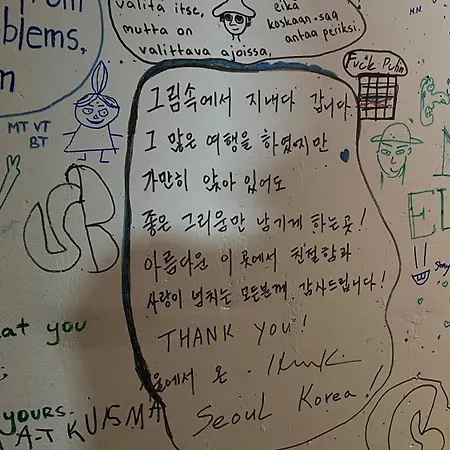 from
blems,
valita itse,
mutta on
valittava ajoissa,
eikä
koskaan saa
antaa periksi.
H.H.
Fuck Putin
MT VT
BT
그림속에서 지내다 갑니다
그 많은 여행을 하였지만
가만히 앉아 있어도
좋은 그리움만 남기게 하는곳!
아름다운 이 곳에서 친절함과
사랑이 넘치는 모든분께 감사드립니다!
THANK YOU!
서울에서 온
Seoul Korea!
at you
yours.
A-T KUISMA